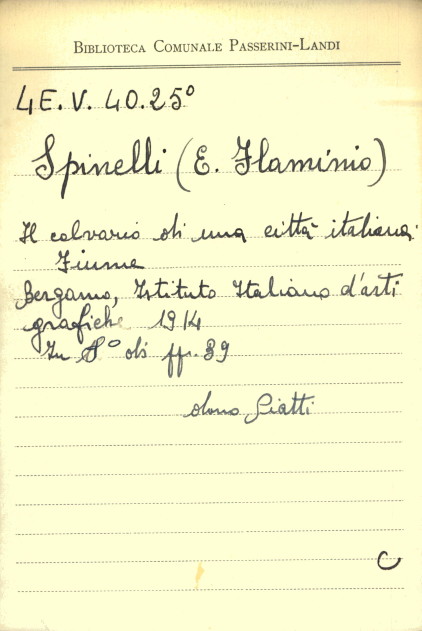 BIBLIOTECA COMUNALE PASSERINI-LANDI
4E. V. 40.25°
Spinelli (E. Flaminio)
Il calvario di una città italiana:
Fiume
Bergamo, Istituto Italiano d'arti
grafiche 1914
In 8° di pp. 39
dono Piatti
C